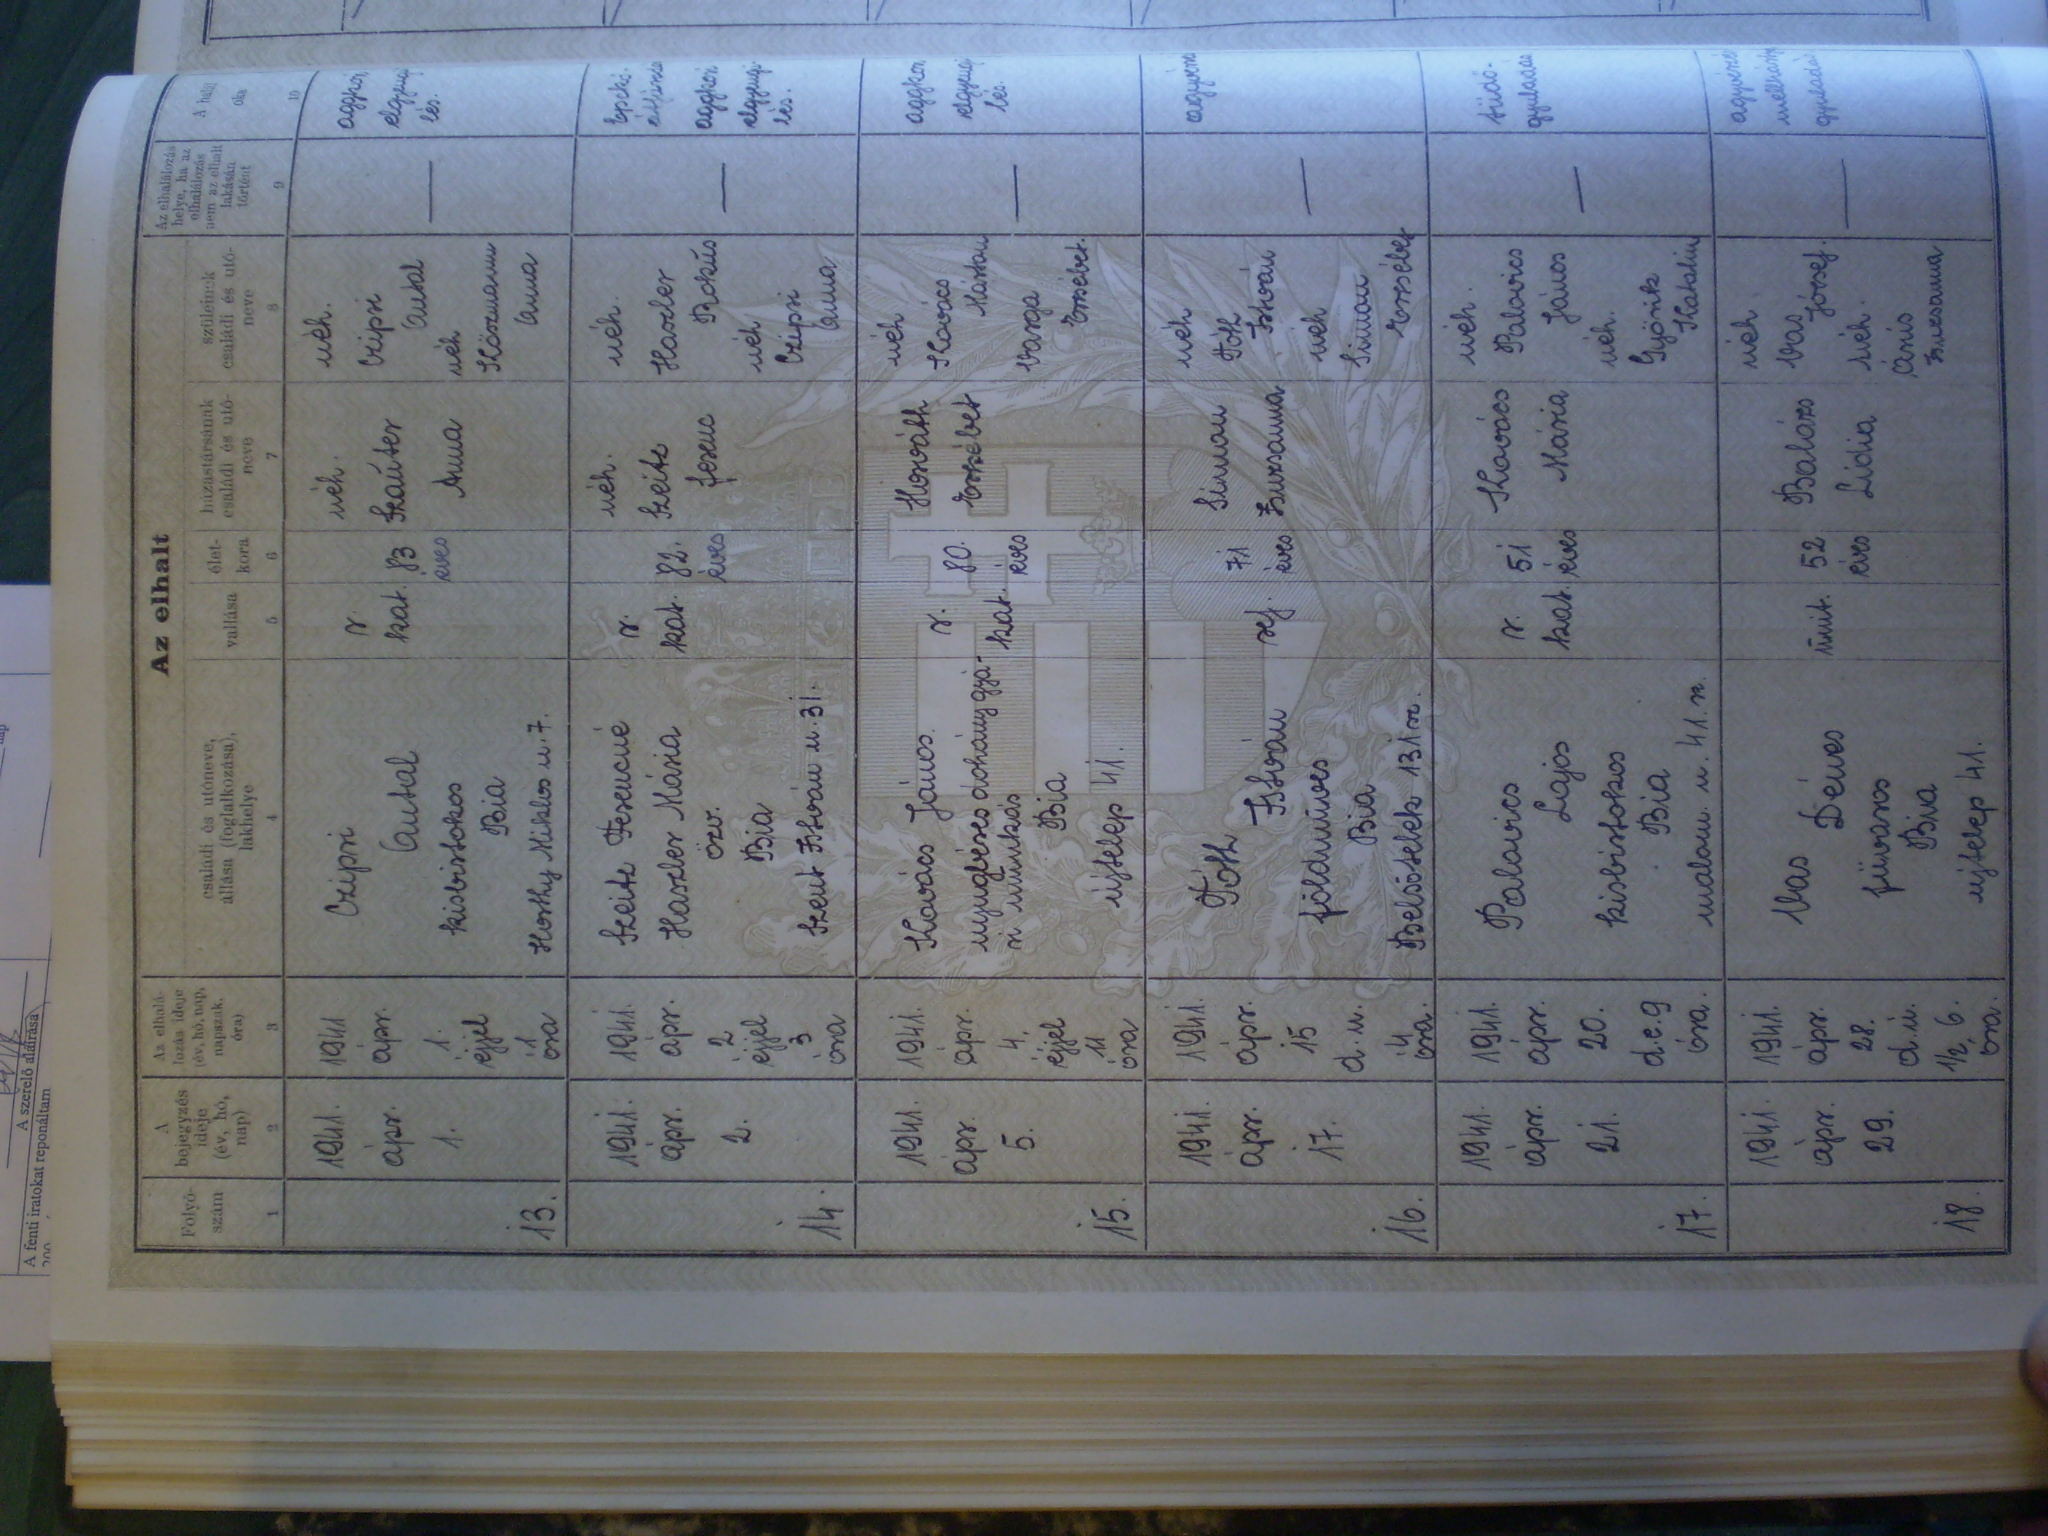 A szerelő aláírása
A fenti iratokat reponáltam
Az elhalt
Folyó-
szám
A
bejegyzés
ideje
(év, hó,
nap)
Az elhalá-
lozás ideje
(év, hó, nap,
napszak,
óra)
családi és utóneve,
állása (foglalkozása),
lakhelye
vallása
élet-
kora
házastársának
családi és utó-
neve
szüleinek
családi és utó-
neve
Az elhalálozás
helye, ha az
elhalálozás
nem az elhalt
lakásán
történt
A halál
oka
1
2
3
4
5
6
7
8
9
10
13.
1941.
ápr.
1.
1941
ápr.
1.
éjjel
1
óra
Czipri
Antal
kisbirtokos
Bia
Horthy Miklós u. 7.
r.
kat.
83
éves
néh.
Szauter
Anna
néh.
Czipri
Antal
néh
Anna
aggkori
elgyengü-
lés.
14.
1941.
ápr.
2.
1941.
ápr.
2
éjjel
3
óra
Szeitz Ferencné
Haszler Mária
özv.
Bia
Szent István u. 31.
r.
kat.
82.
éves
néh.
Szeitz
Ferenc
néh.
Haszler
Rókus
néh
Czipri
Anna
aggkori
elgyengü-
lés.
15.
1941.
ápr.
5.
1941.
ápr.
4.
éjjel
11
óra
Kovács János.
nyugbéres dohánygyá-
ri munkás
Bia
újtelep 41.
r.
kat.
80.
éves
Horváth
Erzsébet
néh
Kovács
Márton
Varga
Erzsébet.
aggkori
elgyengü-
lés.
16.
1941.
ápr.
17.
1941
ápr
15
d.u.
4
óra.
Tóth
István
földműves
Bia
Belsőtelek 131 sz.
ref.
71
éves
Simon
Zsuzsanna
néh
Tóth
István
néh
Simon
Erzsébet
17.
1941.
ápr.
21.
1941.
ápr.
20.
d.e. 9
óra.
Palovics
Lajos
kisbirtokos
Bia
malom u. 41. sz.
r.
kat.
51
éves
Kovács
Mária
néh.
Palovics
János
néh.
Katalin
tüdő-
gyulladás
18.
1941.
ápr.
29.
1941.
ápr.
28.
d.u.
1/2 6.
óra.
Vas
Dénes
fuvaros
Bia
újtelep 41.
unit.
52
éves
Balázs
Lidia
néh.
Vas
József.
néh.
Zsuzsanna